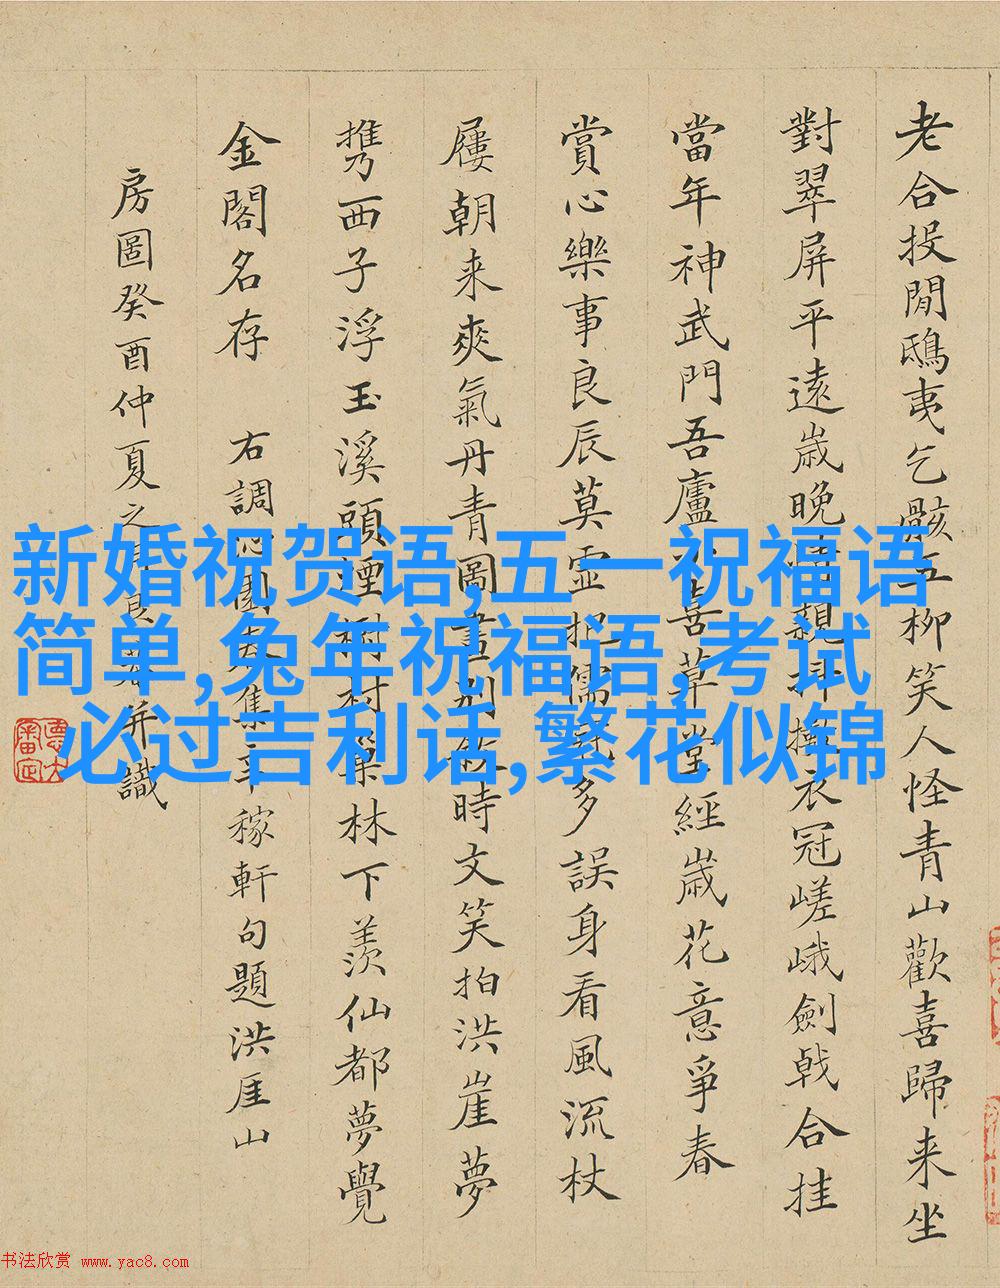 老合投閒鴟夷乞骸五柳笑人怪青山歡喜歸来坐
對翠屏平遠歲晚情親衣冠嵯峨劍戟合挂
當年神武門吾廬喜草堂經歲花意爭春
賞心樂事良辰莫虛儒冠多誤身看風流杖
屨朝来爽氣丹青圖畫別時文笑拍洪崖夢
携西子浮玉溪頭煙樹村林下羨仙都夢覺
金閣名存 右調沁園春集辛稼軒句題洪厓山
房圖癸酉仲夏之月良并識
新婚祝贺语,五一祝福语
简单,兔年祝福语,考试
必过吉利话,繁花似锦
书法欣赏 www.yac8.com